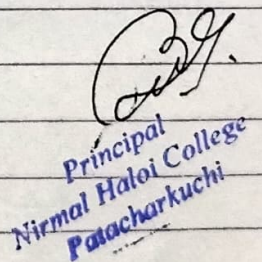 Principal
Nirmal Haloi College
Patacharkuchi